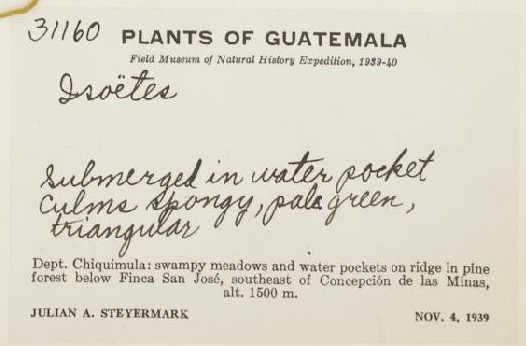 31160
PLANTS OF GUATEMALA
Field Museum of Natural History Expedition, 1939-40
Isoëtes
Submerged in water pocket
Culms spongy, pale green,
triangular
Dept. Chiquimula: swampy meadows and water pockets on ridge in pine
forest below Finca San José, southeast of Concepción de las Minas,
alt. 1500 m.
JULIAN A. STEYERMARK
NOV. 4, 1939